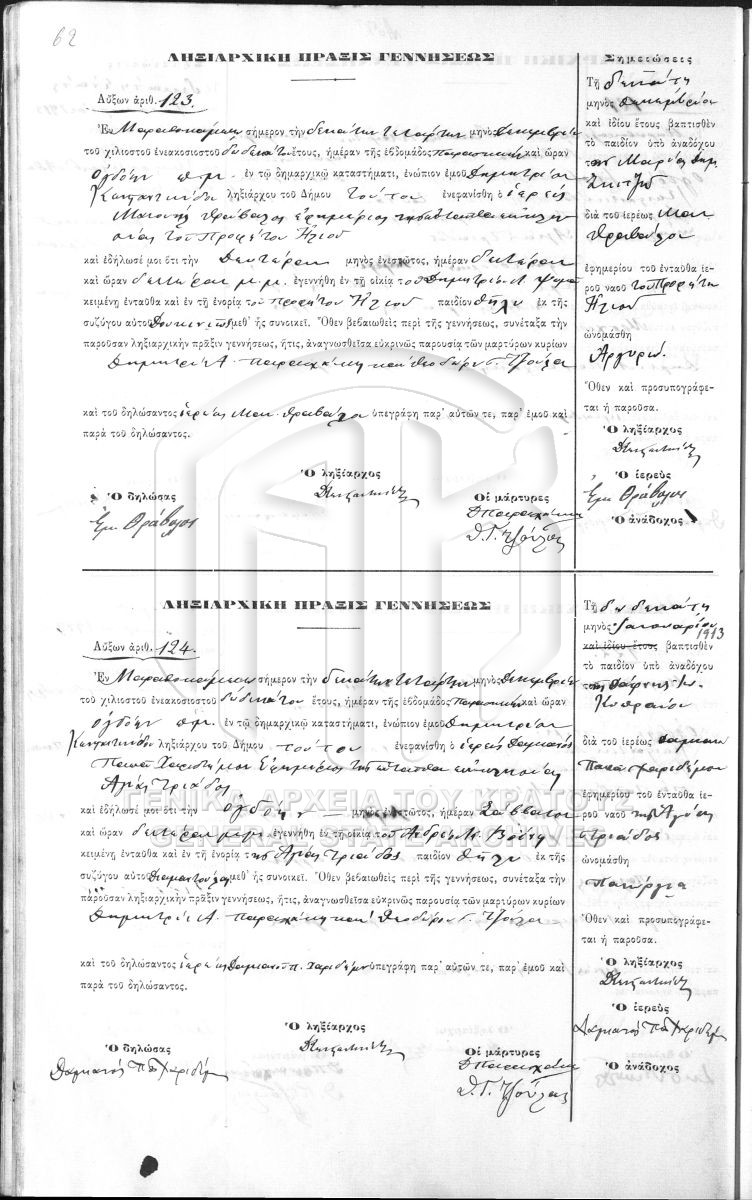 62
ΛΗΞΙΑΡΧΙΚΗ ΠΡΑΞΙΣ ΓΕΝΝΗΣΕΩΣ
Αὔξων ἀριθ. 123.
Ἐν Μαραθοκάμπῳ σήμερον τὴν δεκάτην τετάρτην μηνὸς Δεκεμβρίου
τοῦ χιλιοστοῦ ἐνεακοσιοστοῦ δωδεκάτου ἔτους, ἡμέραν τῆς ἑβδομάδος Παρασκευὴν καὶ ὥραν
ὀγδόην π.μ. ἐν τῷ δημαρχικῷ καταστήματι, ἐνώπιον ἐμοῦ Δημητρίου
ληξιάρχου τοῦ Δήμου τούτου ἐνεφανίσθη ὁ ἱερεὺς
Θράβαλος ἐφημέριος τῆς ἐνταῦθα
τοῦ Προφήτου Ἠλιοῦ
καὶ ἐδήλωσέ μοι ὅτι τὴν Δευτέραν μηνὸς ἐνεστῶτος, ἡμέραν δευτέραν
καὶ ὥραν δευτέραν μ.μ. ἐγεννήθη ἐν τῇ οἰκίᾳ τοῦ Δημητρίου Λ.
κειμένῃ ἐνταῦθα καὶ ἐν τῇ ἐνορίᾳ τοῦ Προφήτου Ἠλιοῦ παιδίον θῆλυ ἐκ τῆς
συζύγου αὐτοῦ μεθ' ἧς συνοικεῖ. Ὅθεν βεβαιωθεὶς περὶ τῆς γεννήσεως, συνέταξα τὴν
παροῦσαν ληξιαρχικὴν πρᾶξιν γεννήσεως, ἥτις, ἀναγνωσθεῖσα εὐκρινῶς παρουσίᾳ τῶν μαρτύρων κυρίων
Δημητρίου Α. καὶ Θεοδώρου Γ. Τζούλα
καὶ τοῦ δηλώσαντος ἱερέως Μαν. Θραβάλου ὑπεγράφη παρ' αὐτῶν τε, παρ' ἐμοῦ καὶ
παρὰ τοῦ δηλώσαντος.
Ὁ ληξίαρχος
Ὁ δηλώσας
Οἱ μάρτυρες
Θράβαλος
Θ. Γ. Τζούλας
Σημειώσεις
Τῇ δεκάτῃ
μηνὸς Δεκεμβρίου
καὶ ἰδίου ἔτους βαπτισθὲν
τὸ παιδίον ὑπὸ ἀναδόχου
Μαρίας Δημ.
διὰ τοῦ ἱερέως Μαν.
Θραβάλου
ἐφημερίου τοῦ ἐνταῦθα ἱε-
ροῦ ναοῦ τοῦ Προφήτου
Ἠλιοῦ
ὠνομάσθη
Ἀργυρώ.
Ὅθεν καὶ προσυπογράφε-
ται ἡ παροῦσα.
Ὁ ληξίαρχος
Ὁ ἱερεὺς
Θράβαλος
Ὁ ἀνάδοχος
ΛΗΞΙΑΡΧΙΚΗ ΠΡΑΞΙΣ ΓΕΝΝΗΣΕΩΣ
Αὔξων ἀριθ. 124.
Ἐν Μαραθοκάμπῳ σήμερον τὴν δεκάτην τετάρτην μηνὸς Δεκεμβρίου
τοῦ χιλιοστοῦ ἐνεακοσιοστοῦ δωδεκάτου ἔτους, ἡμέραν τῆς ἑβδομάδος Παρασκευὴν καὶ ὥραν
ὀγδόην π.μ. ἐν τῷ δημαρχικῷ καταστήματι, ἐνώπιον ἐμοῦ Δημητρίου
ληξιάρχου τοῦ Δήμου τούτου ἐνεφανίσθη ὁ ἱερεὺς Δαμιανὸς
Παπᾶ Χαριδήμου ἐφημέριος τῆς ἐνταῦθα
Ἁγίας Τριάδος
καὶ ἐδήλωσέ μοι ὅτι τὴν ὀγδόην μηνὸς ἐνεστῶτος, ἡμέραν Σάββατον
καὶ ὥραν δευτέραν ἐγεννήθη ἐν τῇ οἰκίᾳ τοῦ
κειμένῃ ἐνταῦθα καὶ ἐν τῇ ἐνορίᾳ τῆς Ἁγίας Τριάδος παιδίον θῆλυ ἐκ τῆς
συζύγου αὐτοῦ μεθ' ἧς συνοικεῖ. Ὅθεν βεβαιωθεὶς περὶ τῆς γεννήσεως, συνέταξα τὴν
παροῦσαν ληξιαρχικὴν πρᾶξιν γεννήσεως, ἥτις, ἀναγνωσθεῖσα εὐκρινῶς παρουσίᾳ τῶν μαρτύρων κυρίων
Δημητρίου Α. καὶ Θεοδώρου Γ. Τζούλα
καὶ τοῦ δηλώσαντος ἱερέως Δαμιανοῦ Π. Χαριδήμου ὑπεγράφη παρ' αὐτῶν τε, παρ' ἐμοῦ καὶ
παρὰ τοῦ δηλώσαντος.
Ὁ ληξίαρχος
Ὁ δηλώσας
Οἱ μάρτυρες
Δαμιανὸς
Θ. Γ. Τζούλας
Τῇ δωδεκάτῃ
μηνὸς Ἰανουαρίου
1913
καὶ ἰδίου ἔτους βαπτισθὲν
τὸ παιδίον ὑπὸ ἀναδόχου
διὰ τοῦ ἱερέως Δαμιανοῦ
Παπᾶ Χαριδήμου
ἐφημερίου τοῦ ἐνταῦθα ἱε-
ροῦ ναοῦ τῆς Ἁγίας
Τριάδος
ὠνομάσθη
Ὅθεν καὶ προσυπογράφε-
ται ἡ παροῦσα.
Ὁ ληξίαρχος
Ὁ ἱερεὺς
Δαμιανὸς
Ὁ ἀνάδοχος
ΓΕΝΙΚΑ ΑΡΧΕΙΑ ΤΟΥ ΚΡΑΤΟΥΣ
GENERAL STATE ARCHIVES